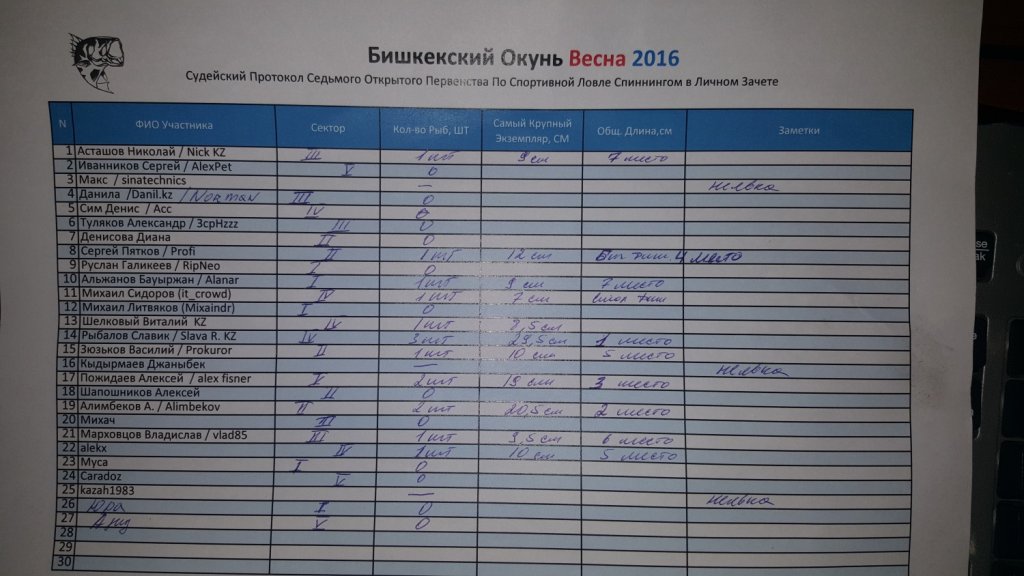 Бишкекский Окунь Весна 2016
Судейский Протокол Седьмого Открытого Первенства По Спортивной Ловле Спиннингом в Личном Зачете
N ФИО Участника Сектор Кол-во Рыб, ШТ Самый Крупный Экземпляр, СМ Общ. Длина,см Заметки
1 Асташов Николай / Nick KZ III 1 шт 9 см 7 место
2 Иванников Сергей / AlexPet V 0
3 Макс / sinatechnics — неявка
4 Данила /Danil.kz / Norman III 0
5 Сим Денис / Acc IV 0
6 Туляков Александр / 3cpHzzz III 0
7 Денисова Диана II 0
8 Сергей Пятков / Profi II 1 шт 12 см 4 место
9 Руслан Галикеев / RipNeo I 0
10 Альжанов Бауыржан / Alanar I 1 шт 9 см 7 место
11 Михаил Сидоров (it_crowd) IV 1 шт 7 см
12 Михаил Литвяков (Mixaindr) I 0
13 Шелковый Виталий KZ IV 1 шт 8,5 см
14 Рыбалов Славик / Slava R. KZ IV 3 шт 29,5 см 1 место
15 Зюзьков Василий / Prokuror II 1 шт 10 см 5 место
16 Кыдырмаев Джаныбек — неявка
17 Пожидаев Алексей / alex fisner V 2 шт 19 см 3 место
18 Шапошников Алексей II 0
19 Алимбеков А. / Alimbekov II 2 шт 20,5 см 2 место
20 Михач III 0
21 Марховцов Владислав / vlad85 III 1 шт 9,5 см 6 место
22 alekx IV 1 шт 10 см 5 место
23 Муса I 0
24 Caradoz V 0
25 kazah1983 — неявка
26 Юра I 0
27 V 0
28
29
30